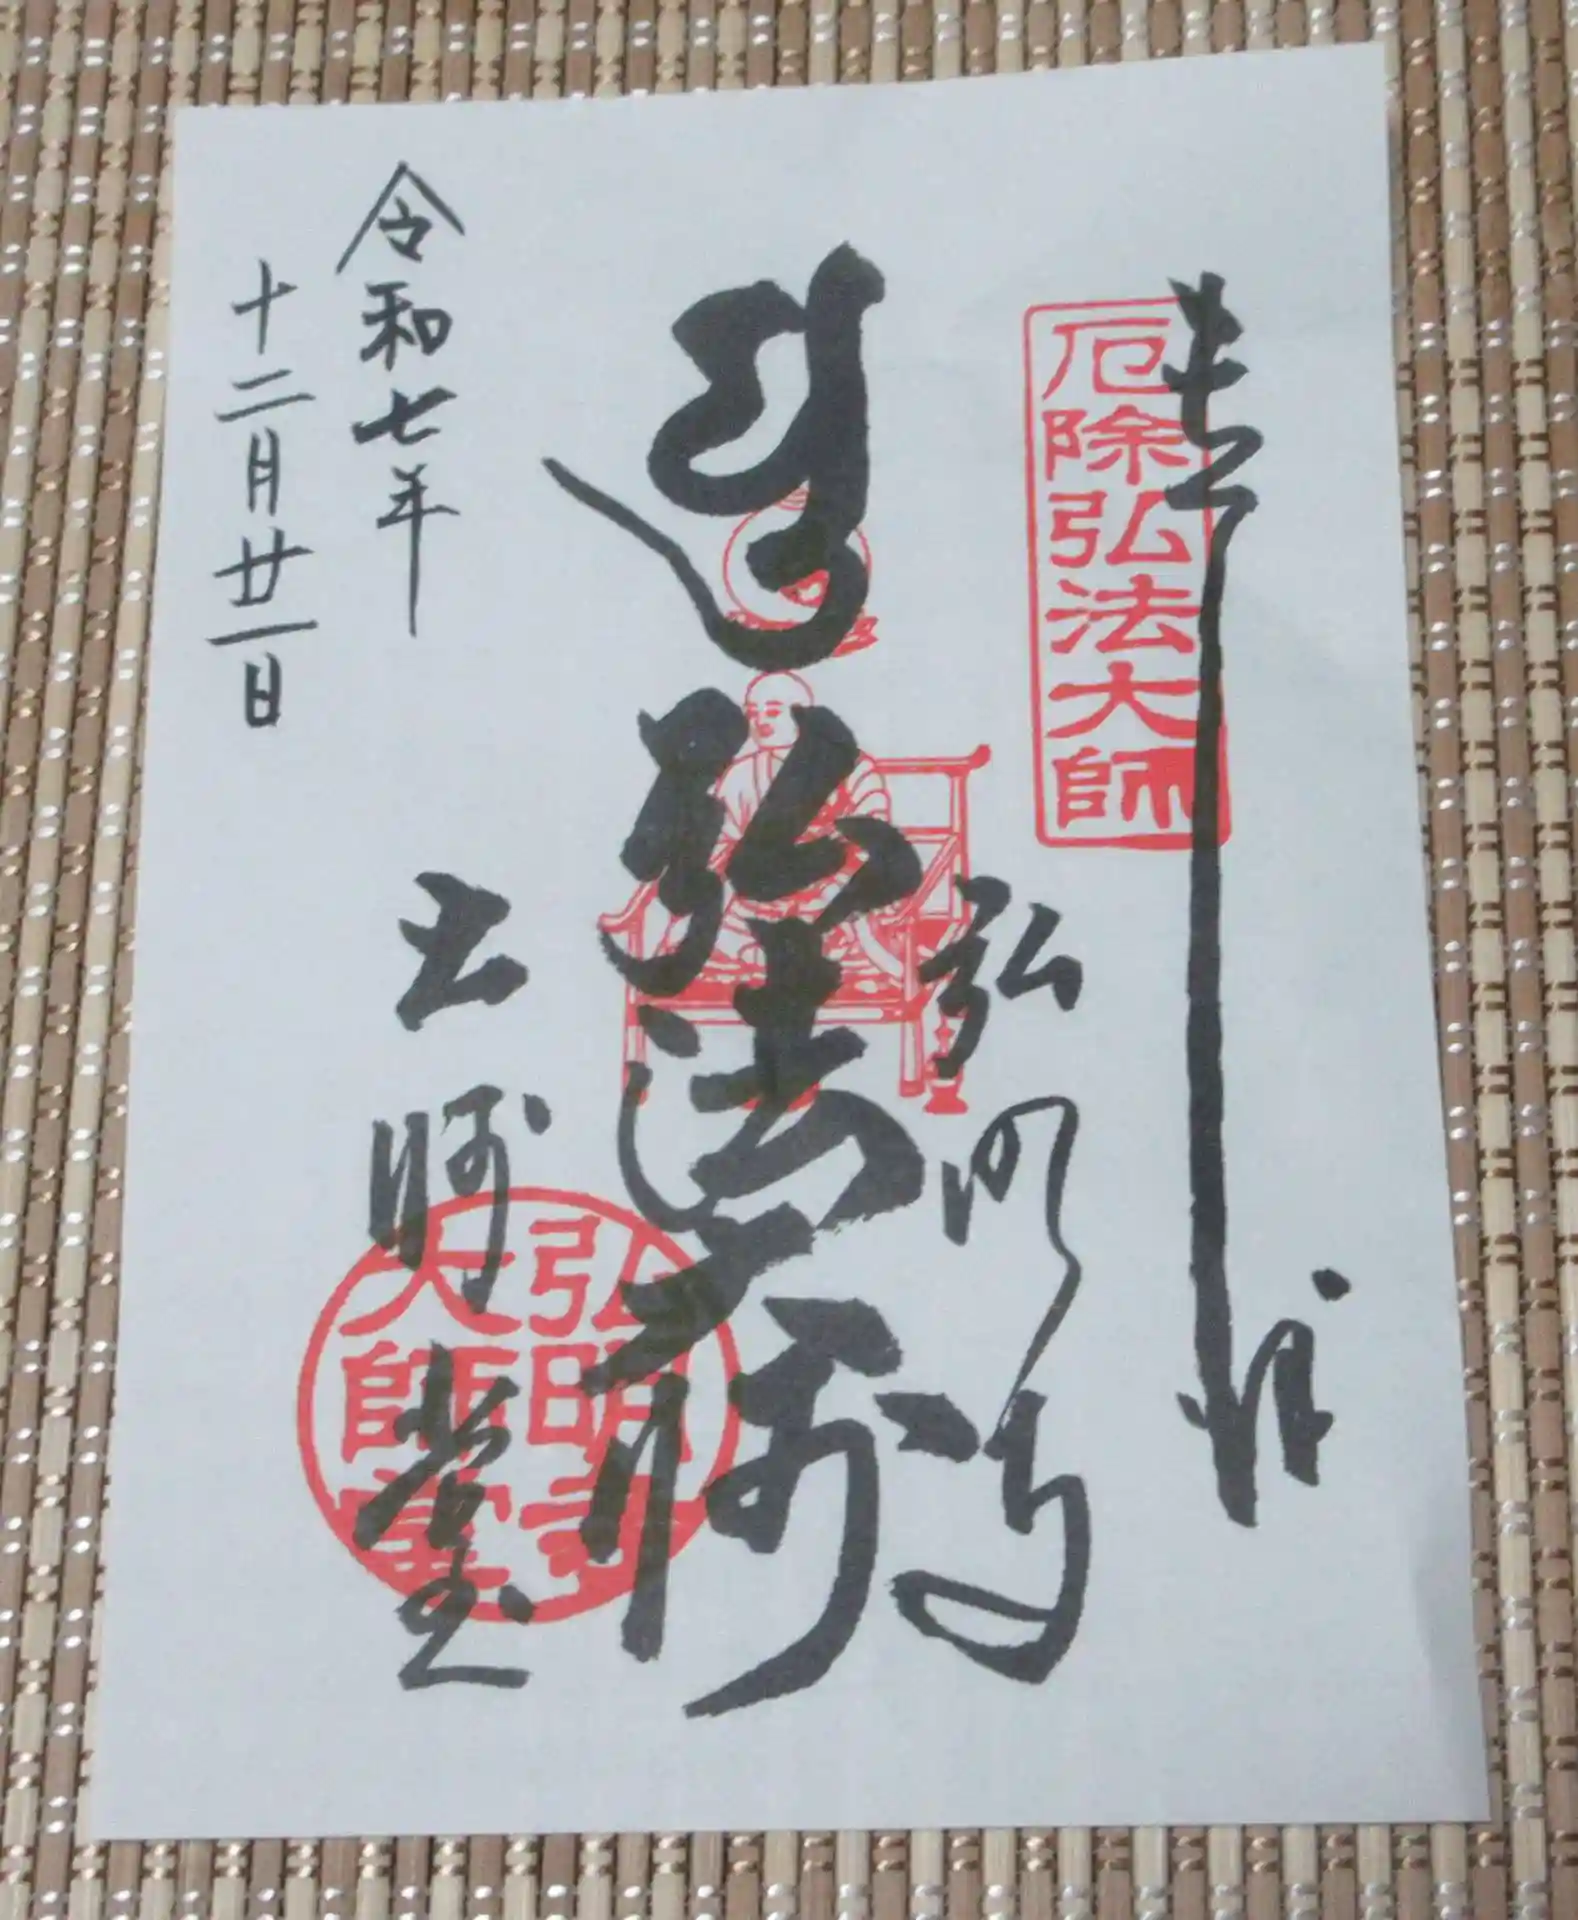 奉拝
厄除弘法大師
弘明寺
弘法大師
大師堂
弘明寺
大師堂
令和七年
十二月廿一日